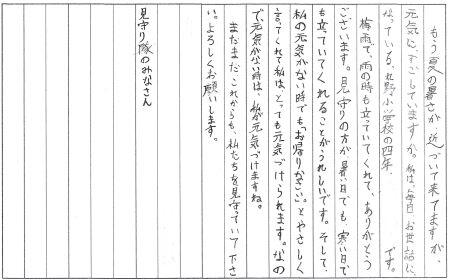 もう夏の暑さが近づいて来てますが、
元気にすごしていますか。私は、毎日お世話に
なっている、北野小学校の四年　です。
梅雨で、雨の時も立っていてくれて、ありがとう
ございます。見守りの方が暑い日でも寒い日で
も立っていてくれることがうれしいです。そして、
私の元気がない時でも「お帰りなさい。」とやさしく
言ってくれて私は、とっても元気づけられます。なの
で、元気がない時は、私が元気づけますね。
まだまだ、これからも、私たちを見守っていて下さ
い。よろしくお願いします。
見守り隊のみなさん